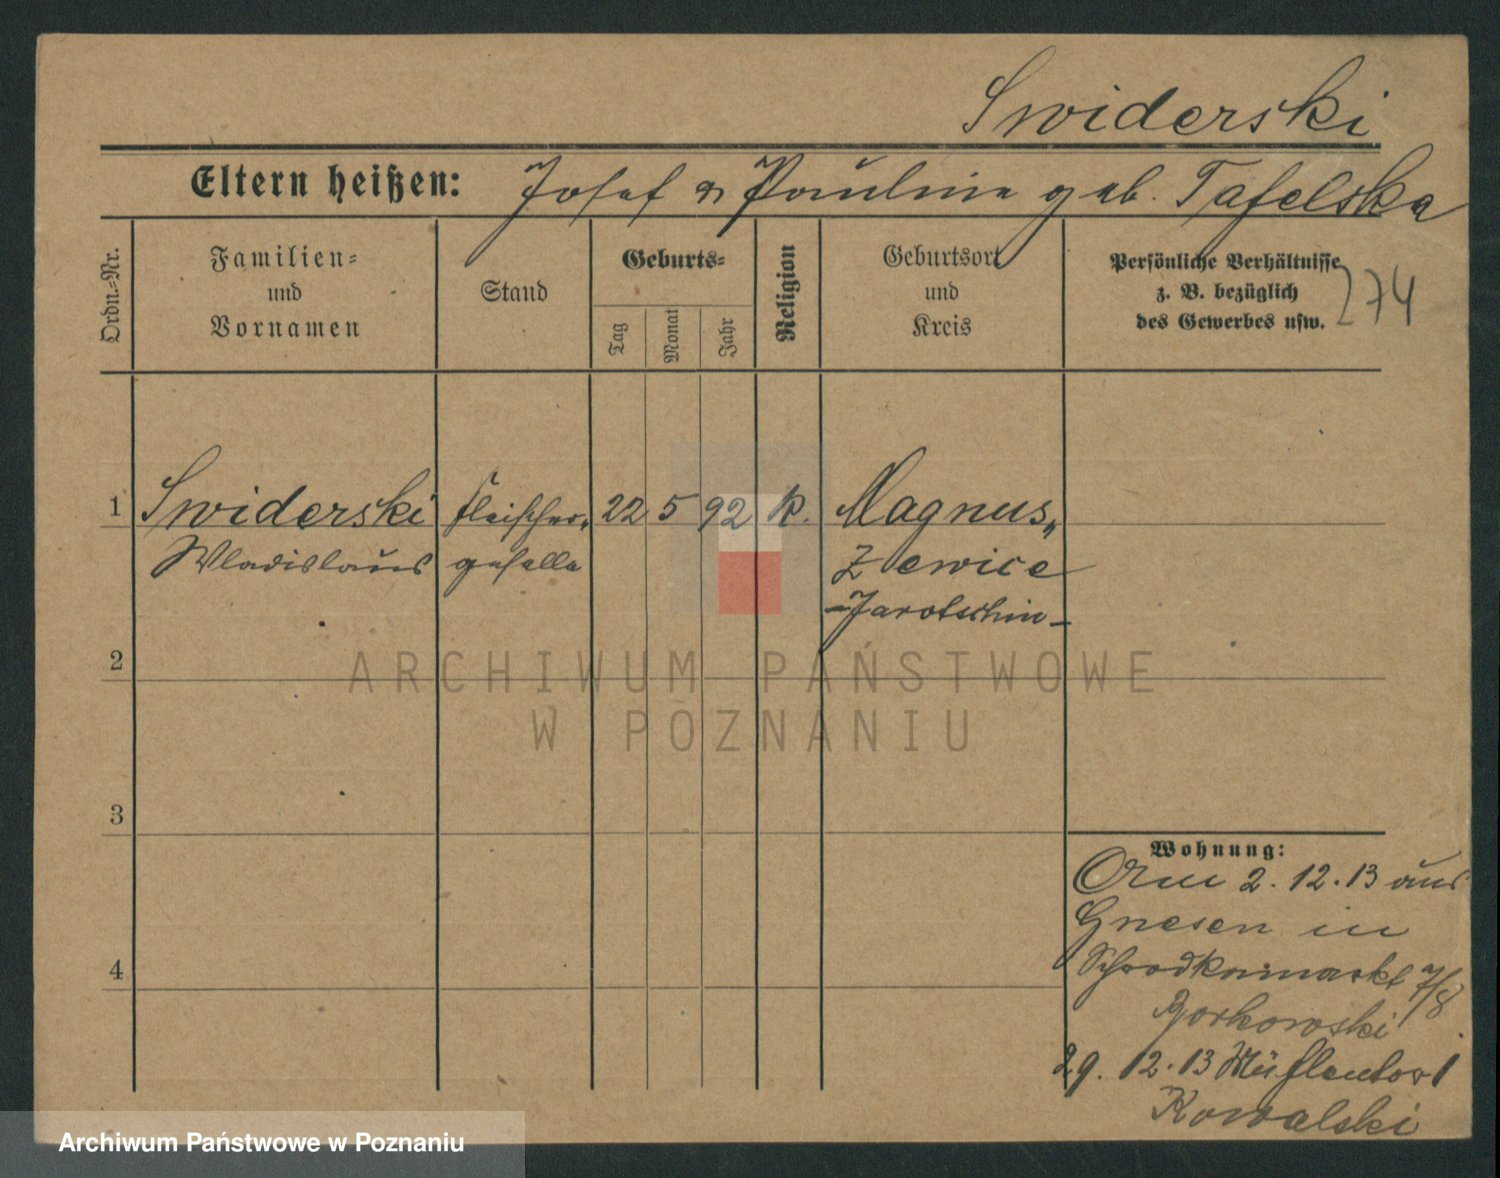 Swiderski
Eltern heißen: Josef u Pauline geb. Tafelska
Ordn.-Nr.
Familien- und Vornamen
Stand
Geburts-
Tag
Monat
Jahr
Religion
Geburtsort und Kreis
Persönliche Verhältnisse z. B. bezüglich des Gewerbes usw.
274
1 Swiderski Fleischer- 22 5 92 k. Magnus-
Wladislaus geselle zewice
-Jarotschin-
2
ARCHIWUM PAŃSTWOWE
W POZNANIU
3
Wohnung:
Am 2.12.13 aus
Gnesen in
4
Schrodkamarkt 7/8
Borkowski
29.12.13 Wallentor 1
Kowalski
Archiwum Państwowe w Poznaniu